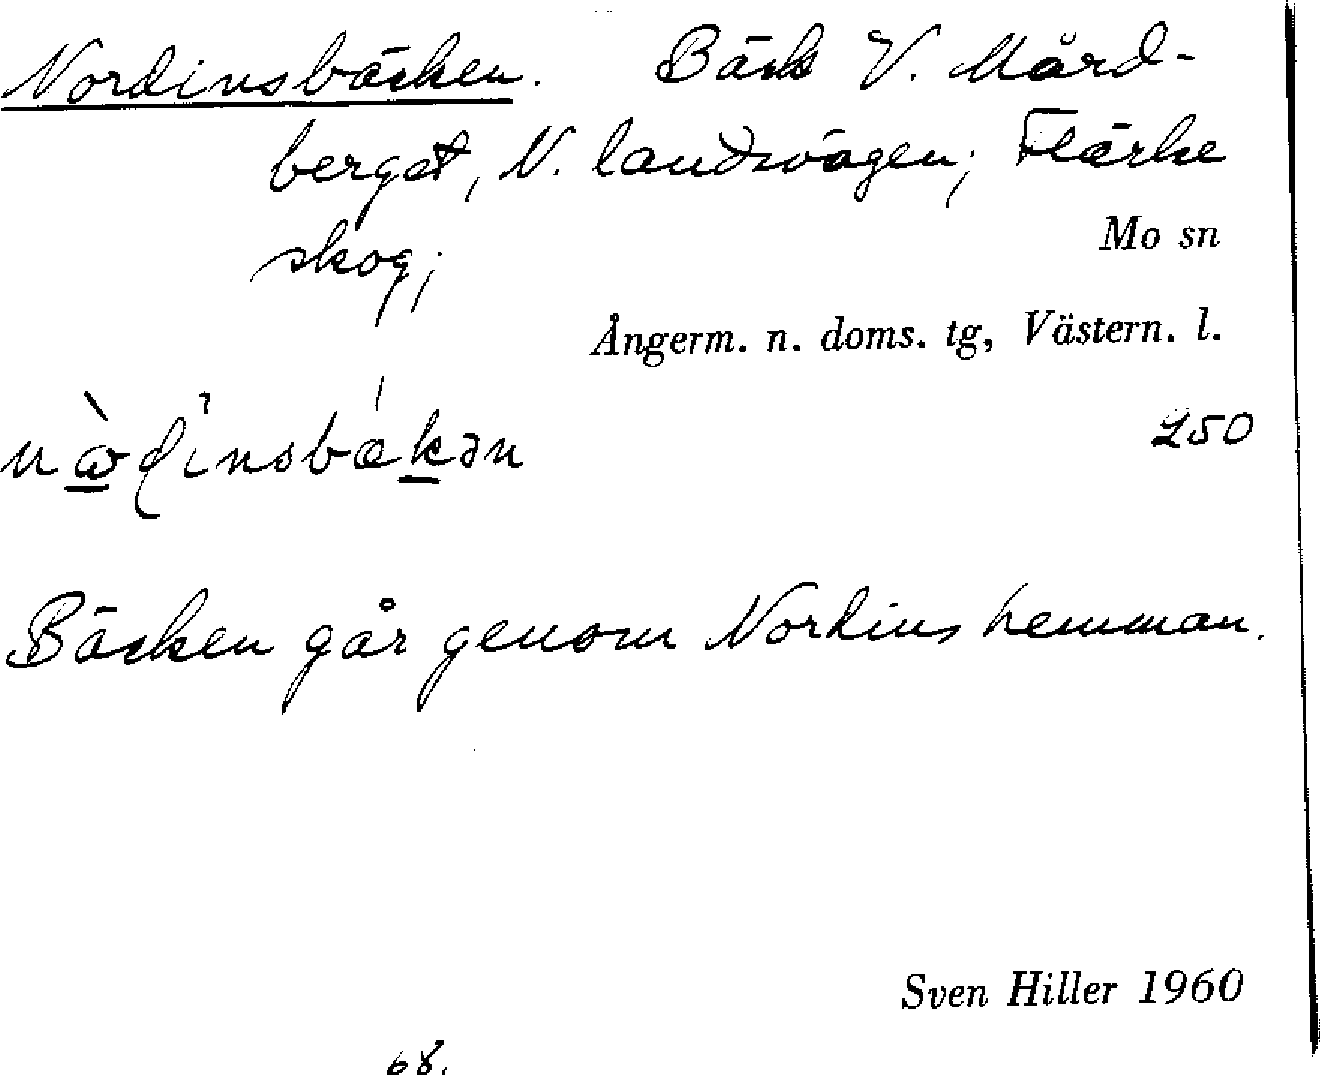 Nordinsbäcken. Bäck V. Mård-
berget, N. landsvägen; Flärke
skog;
Mo sn
Ångerm. n. doms. tg, Västern. l.
250
Bäcken går genom Nordins hemman.
Sven Hiller 1960
68.